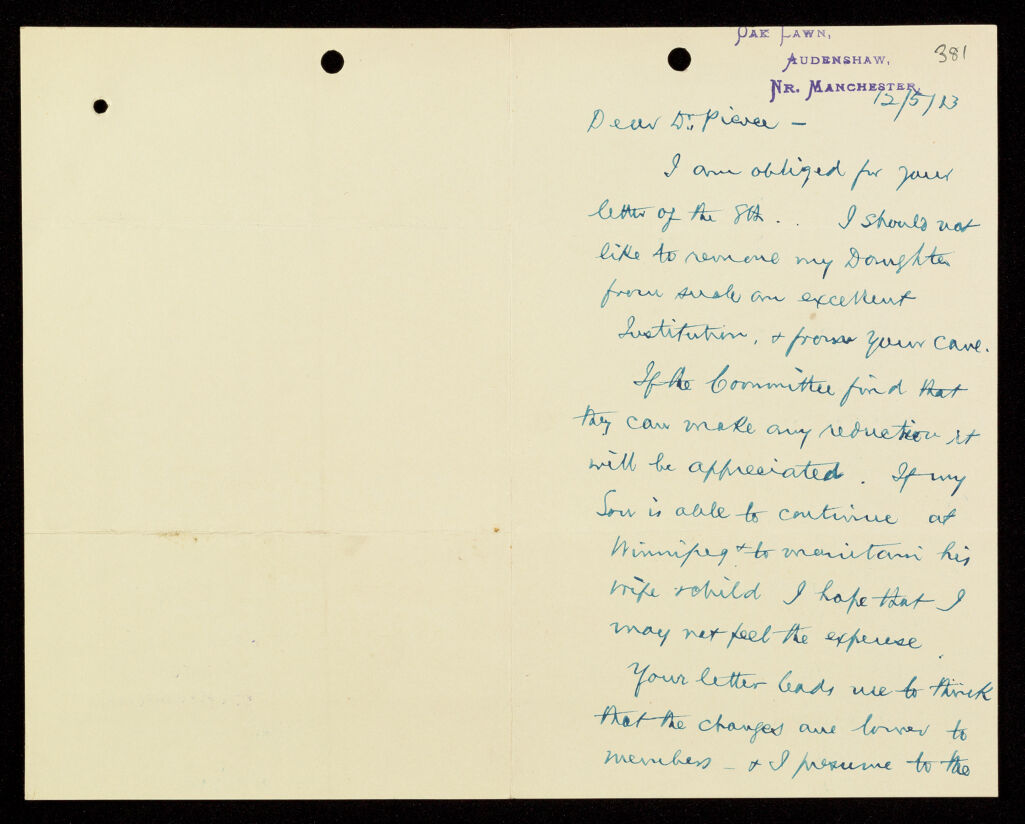 OAK LAWN,
AUDENSHAW,
NR. MANCHESTER,
381
12/5/13
Dear Dr. Pierce —
I am obliged for your
letter of the 8th . . I should not
like to remove my Daughter
from such an excellent
Institution, & from your care.
If the Committee find that
they can make any reduction it
will be appreciated. If my
Son is able to continue at
Winnipeg & to maintain his
wife & child I hope that I
may not feel the expense.
Your letter leads me to think
that the charges are lower to
members — & I presume to the